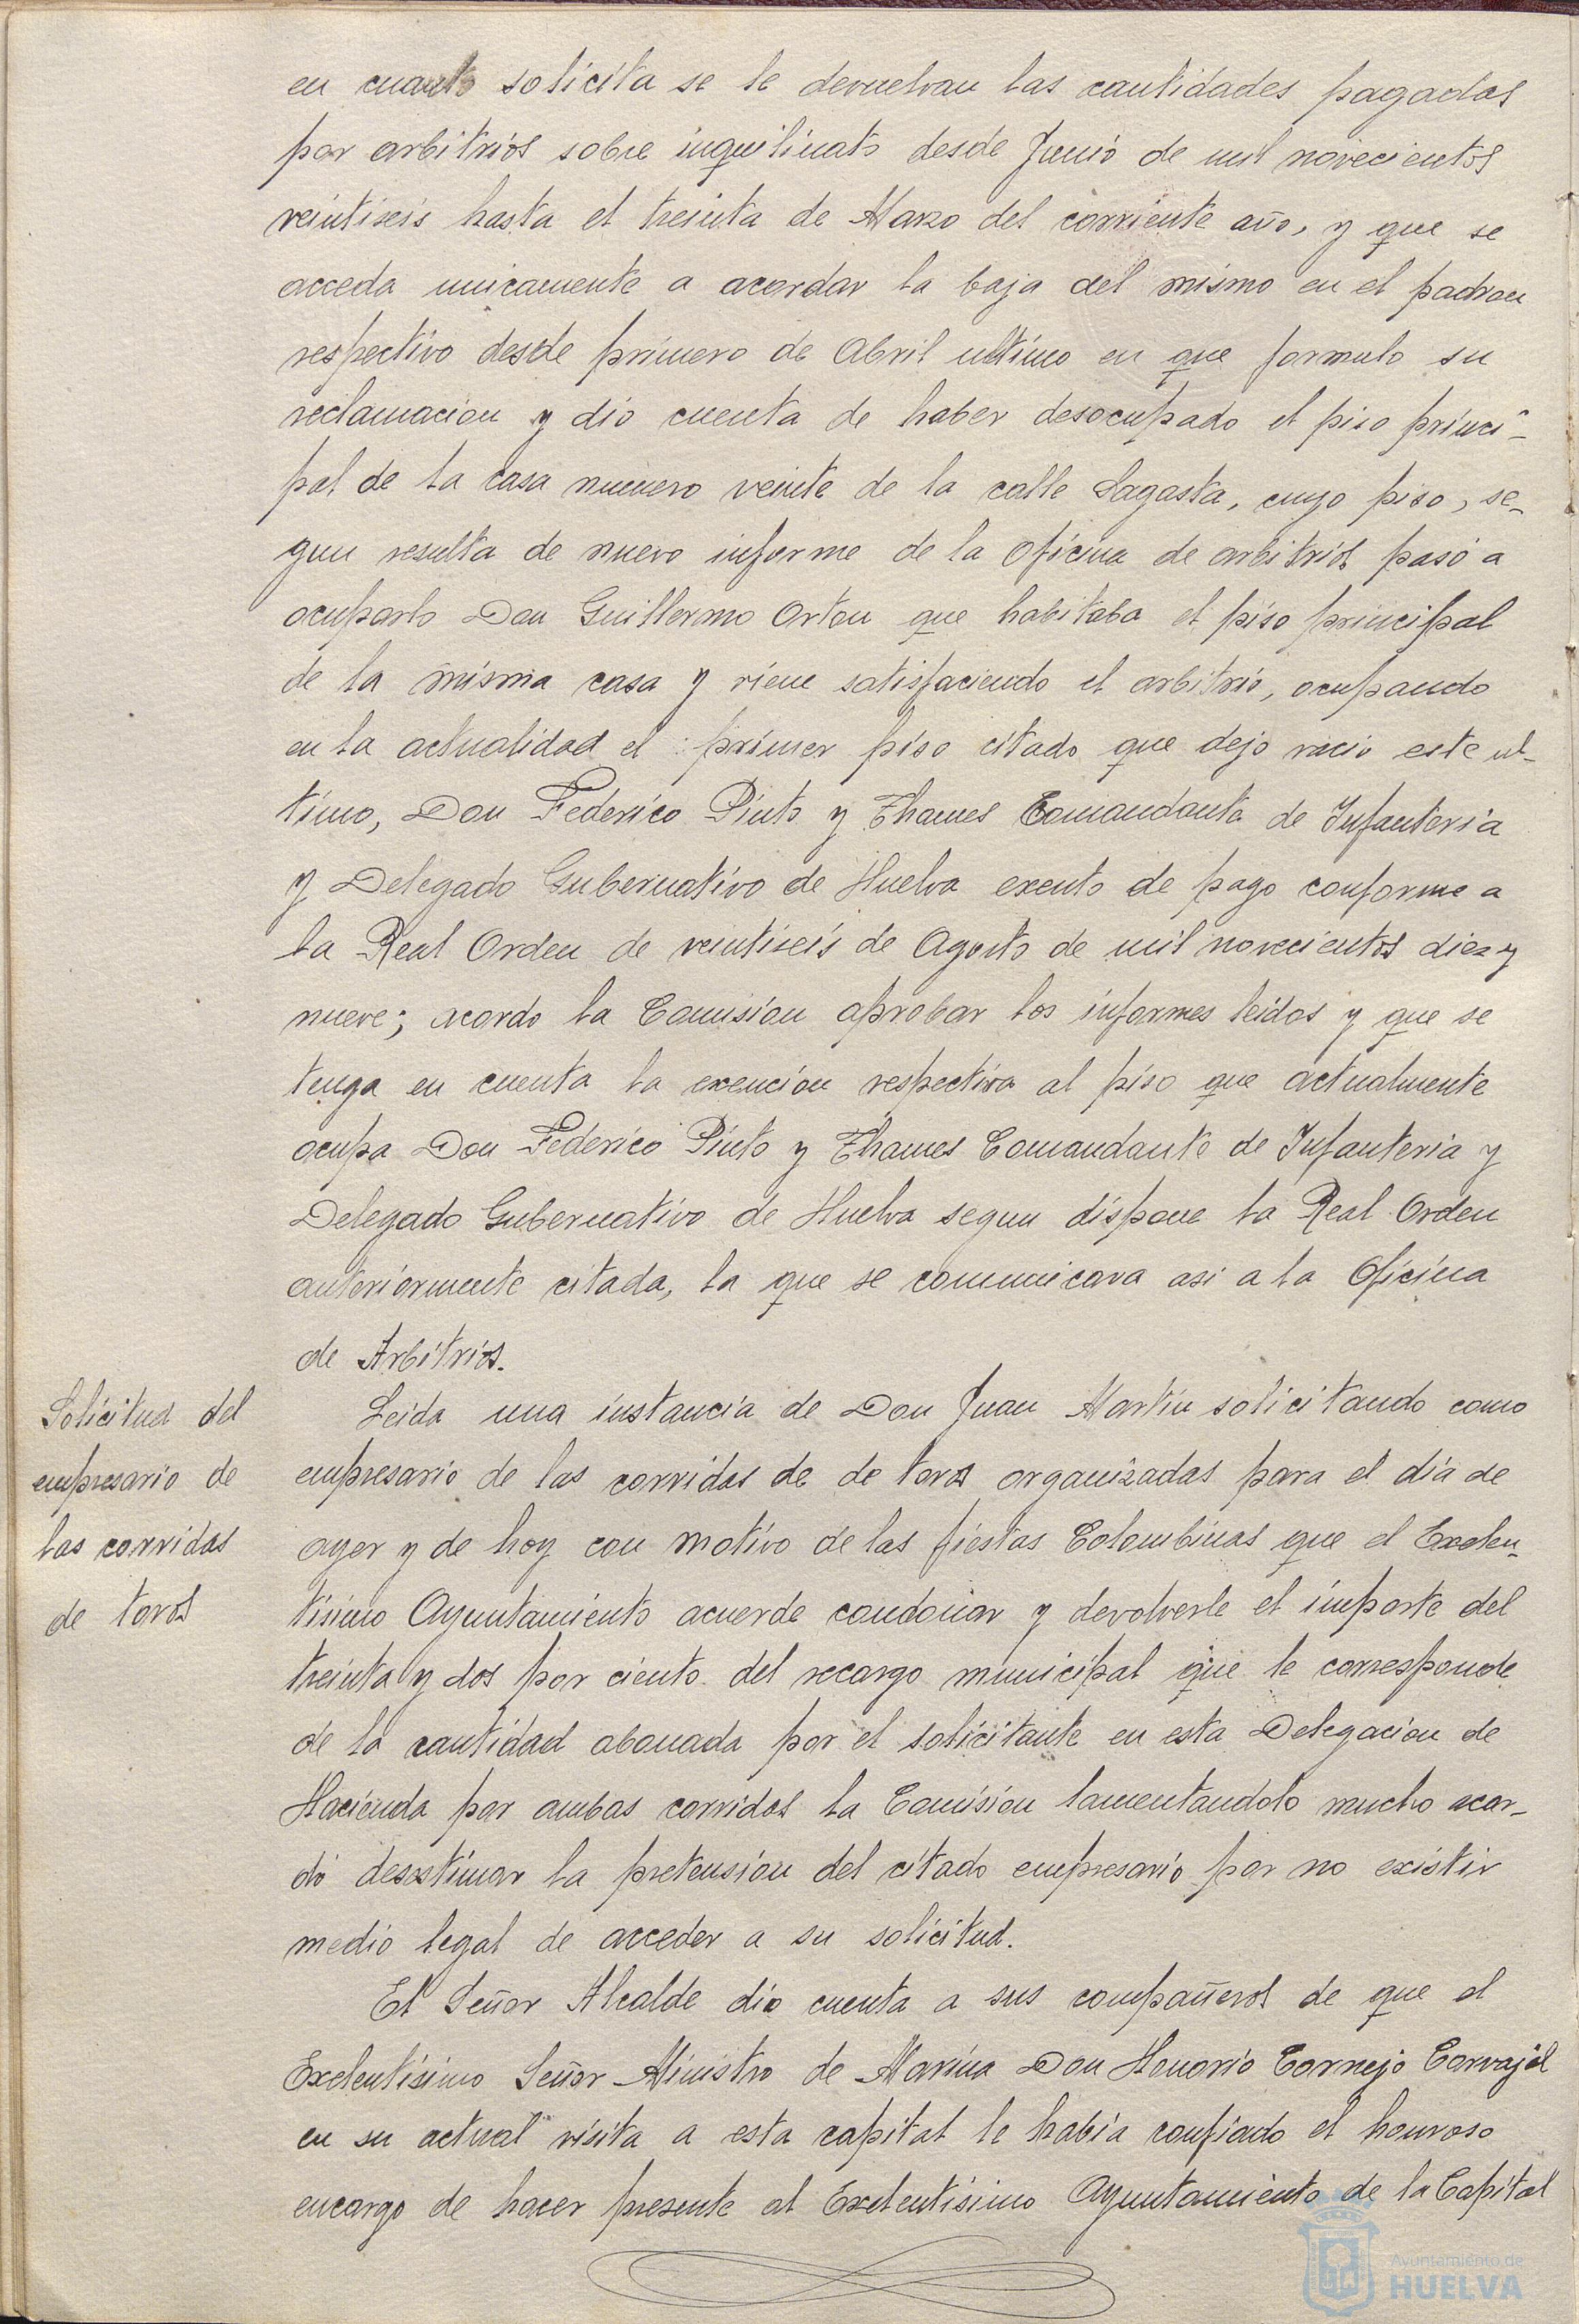 en cuanto solicita se le devuelvan las cantidades pagadas
por arbitrios sobre inquilinato desde Junio de mil novecientos
veintiseis hasta el treinta de Marzo del corriente año, y que se
acceda unicamente a acordar la baja del mismo en el padron
respectivo desde primero de Abril ultimo en que formulo su
reclamacion y dio cuenta de haber desocupado el piso princi-
pal de la casa numero veinte de la calle Sagasta, cuyo piso, se-
gun resulta de nuevo informe de la oficina de arbitrios pasó a
ocuparlo Don Guillermo Orton que habitaba el piso principal
de la misma casa y viene satisfaciendo el arbitrio, ocupando
en la actualidad el primer piso citado que dejo vacio este ul-
timo, Don Federico Pinto y Thames Comandante de Infanteria
y Delegado Gubernativo de Huelva exento de pago conforme a
la Real Orden de veintiseis de Agosto de mil novecientos diez y
nueve; acordo la Comision aprobar los informes leidos y que se
tenga en cuenta la exencion respectiva al piso que actualmente
ocupa Don Federico Pinto y Thames Comandante de Infanteria y
Delegado Gubernativo de Huelva segun dispone la Real Orden
anteriormente citada, la que se comunicara asi a la Oficina
de Arbitrios.
Solicitud del
empresario de
las corridas
de toros
Leida una instancia de Don Juan Martin solicitando como
empresario de las corridas de de toros organizadas para el dia de
ayer y de hoy con motivo de las fiestas Colombinas que el Exelen-
tisimo Ayuntamiento acuerde condonar y devolverle el importe del
treinta y dos por ciento del recargo municipal que le corresponde
de la cantidad abonada por el solicitante en esta Delegacion de
Hacienda por ambas corridas la Comision lamentandolo mucho acor-
dó desestimar la pretension del citado empresario por no existir
medio legal de acceder a su solicitud.
El Señor Alcalde dio cuenta a sus compañeros de que el
Exelentisimo Señor Ministro de Marina Don Honorio Cornejo Carvajal
en su actual visita a esta capital le habia confiado el honroso
encargo de hacer presente al Exelentisimo Ayuntamiento de la Capital
Ayuntamiento de
HUELVA